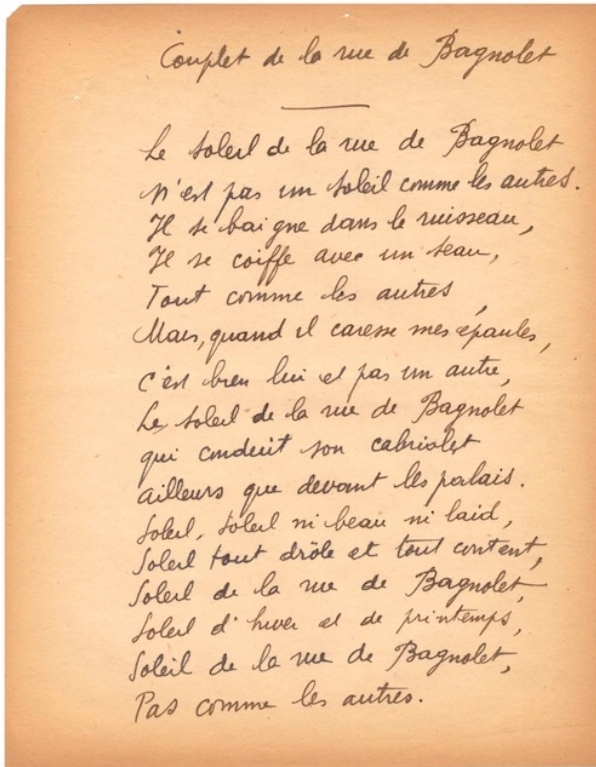 Couplet de la rue de Bagnolet
Le soleil de la rue de Bagnolet
N'est pas un soleil comme les autres.
Il se baigne dans le ruisseau,
Il se coiffe avec un seau,
Tout comme les autres,
Mais, quand il caresse mes épaules,
C'est bien lui et pas un autre,
Le soleil de la rue de Bagnolet
qui conduit son cabriolet
ailleurs que devant les palais.
Soleil, soleil ni beau ni laid,
Soleil tout drôle et tout content,
Soleil de la rue de Bagnolet,
Soleil d'hiver et de printemps,
Soleil de la rue de Bagnolet,
Pas comme les autres.